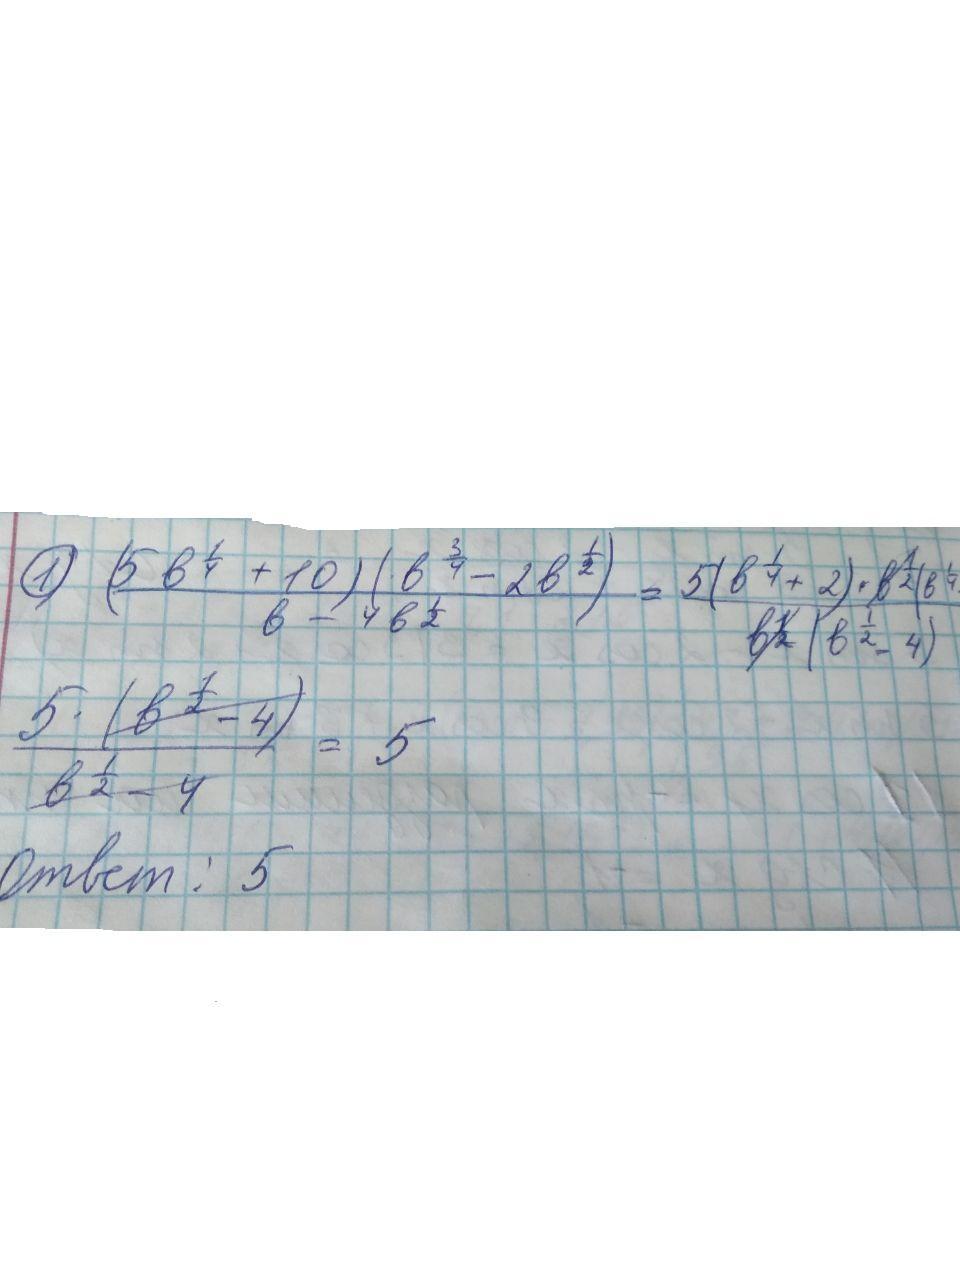 ① (5b^{1/4} + 10)(b^{3/4} - 2b^{1/2}) / (b - 4b^{1/2}) = 5(b^{1/4} + 2) · b^{1/2}(b^{1/4} / b^{1/2}(b^{1/2} - 4)
5 · (b^{1/2} - 4) / (b^{1/2} - 4) = 5
Ответ: 5